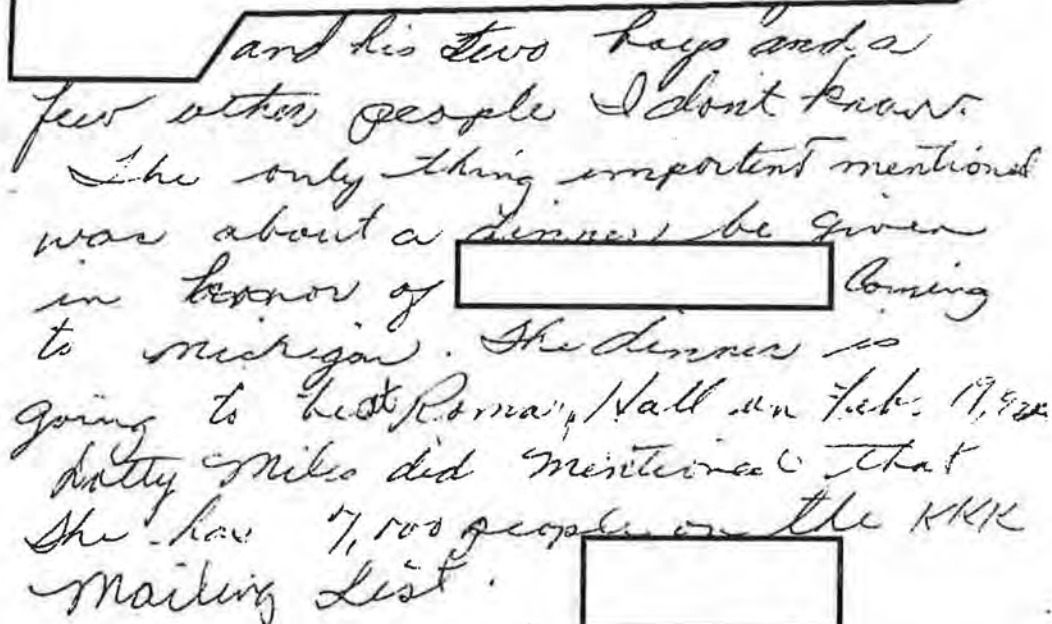 and his two boys and a
few other people I dont know.
The only thing importent mentioned
was about a dinner be given
in honor of Coming
to Michigan. The dinner is
going to be at Roma Hall on Feb. 19,
Dotty Miles did mentioned that
She has 7,100 people on the KKK
Mailing List.